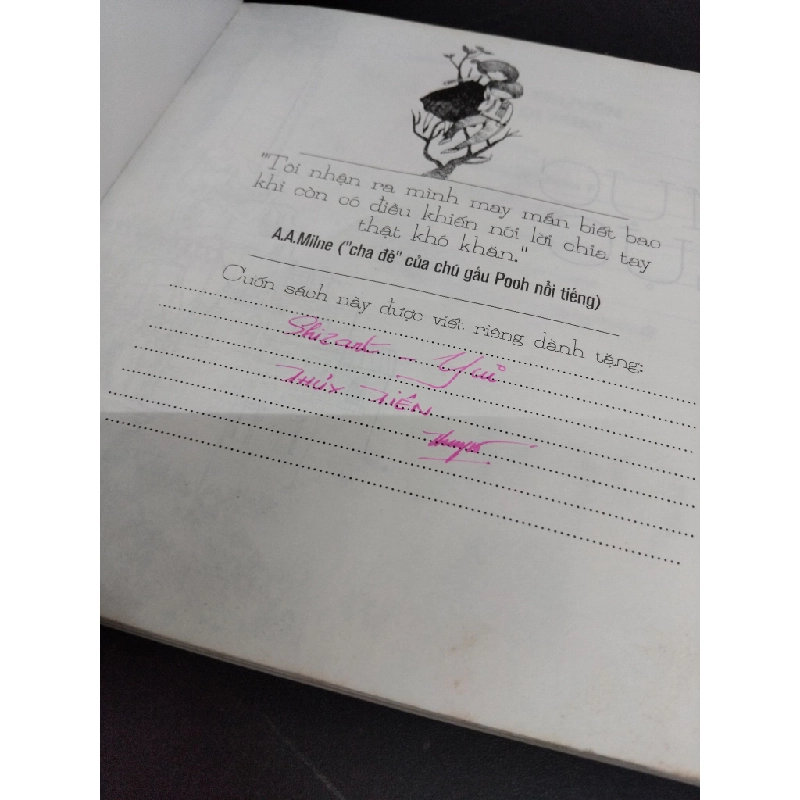 "Tôi nhận ra mình may mắn biết bao
khi còn có điều khiến nói lời chia tay
thật khó khăn."
A.A.Milne ("cha đẻ" của chú gấu Pooh nổi tiếng)
Cuốn sách này được viết riêng dành tặng:
THỦY TIÊN